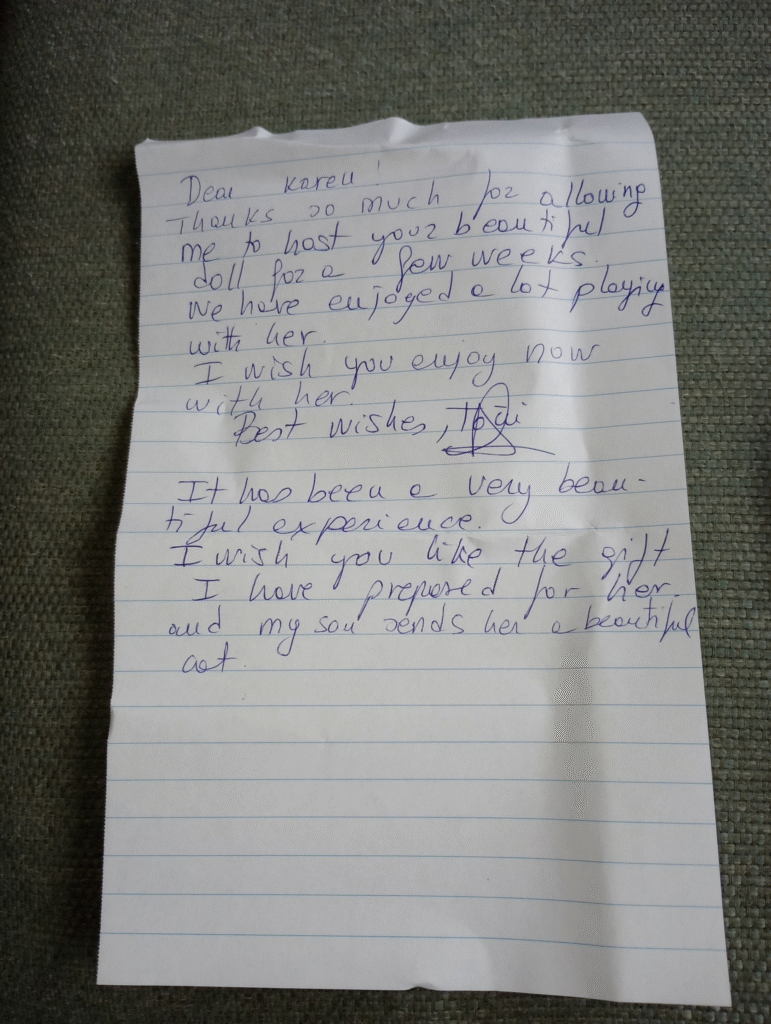 Dear Karen!
Thanks so much for allowing
me to host your beautiful
doll for a few weeks.
We have enjoyed a lot playing
with her.
I wish you enjoy now
with her.
Best wishes,
It has been a very beau-
tiful experience.
I wish you like the gift
I have prepared for her.
and my son sends her a beautiful